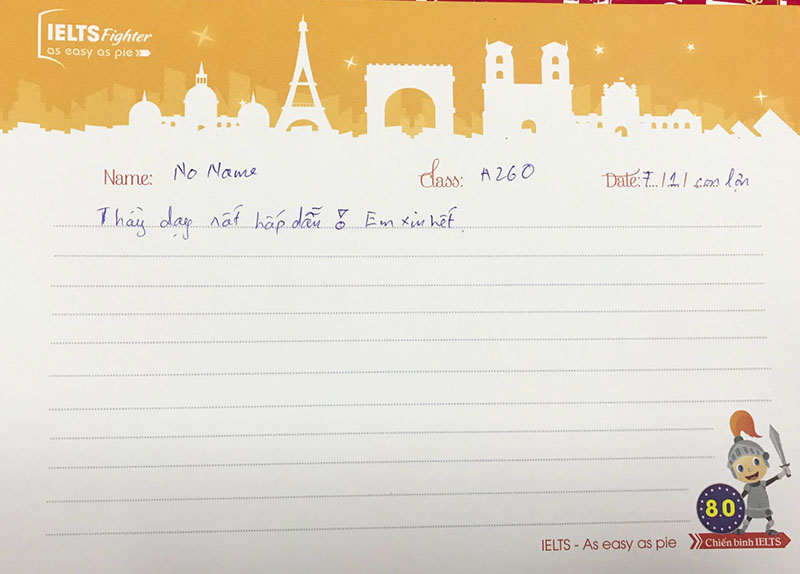 IELTS Fighter
as easy as pie
Name: No Name Class: A260 Date: 7/1/con lợn
Thầy dạy rất hấp dẫn! Em xin hết.
8.0
IELTS - As easy as pie Chiến binh IELTS